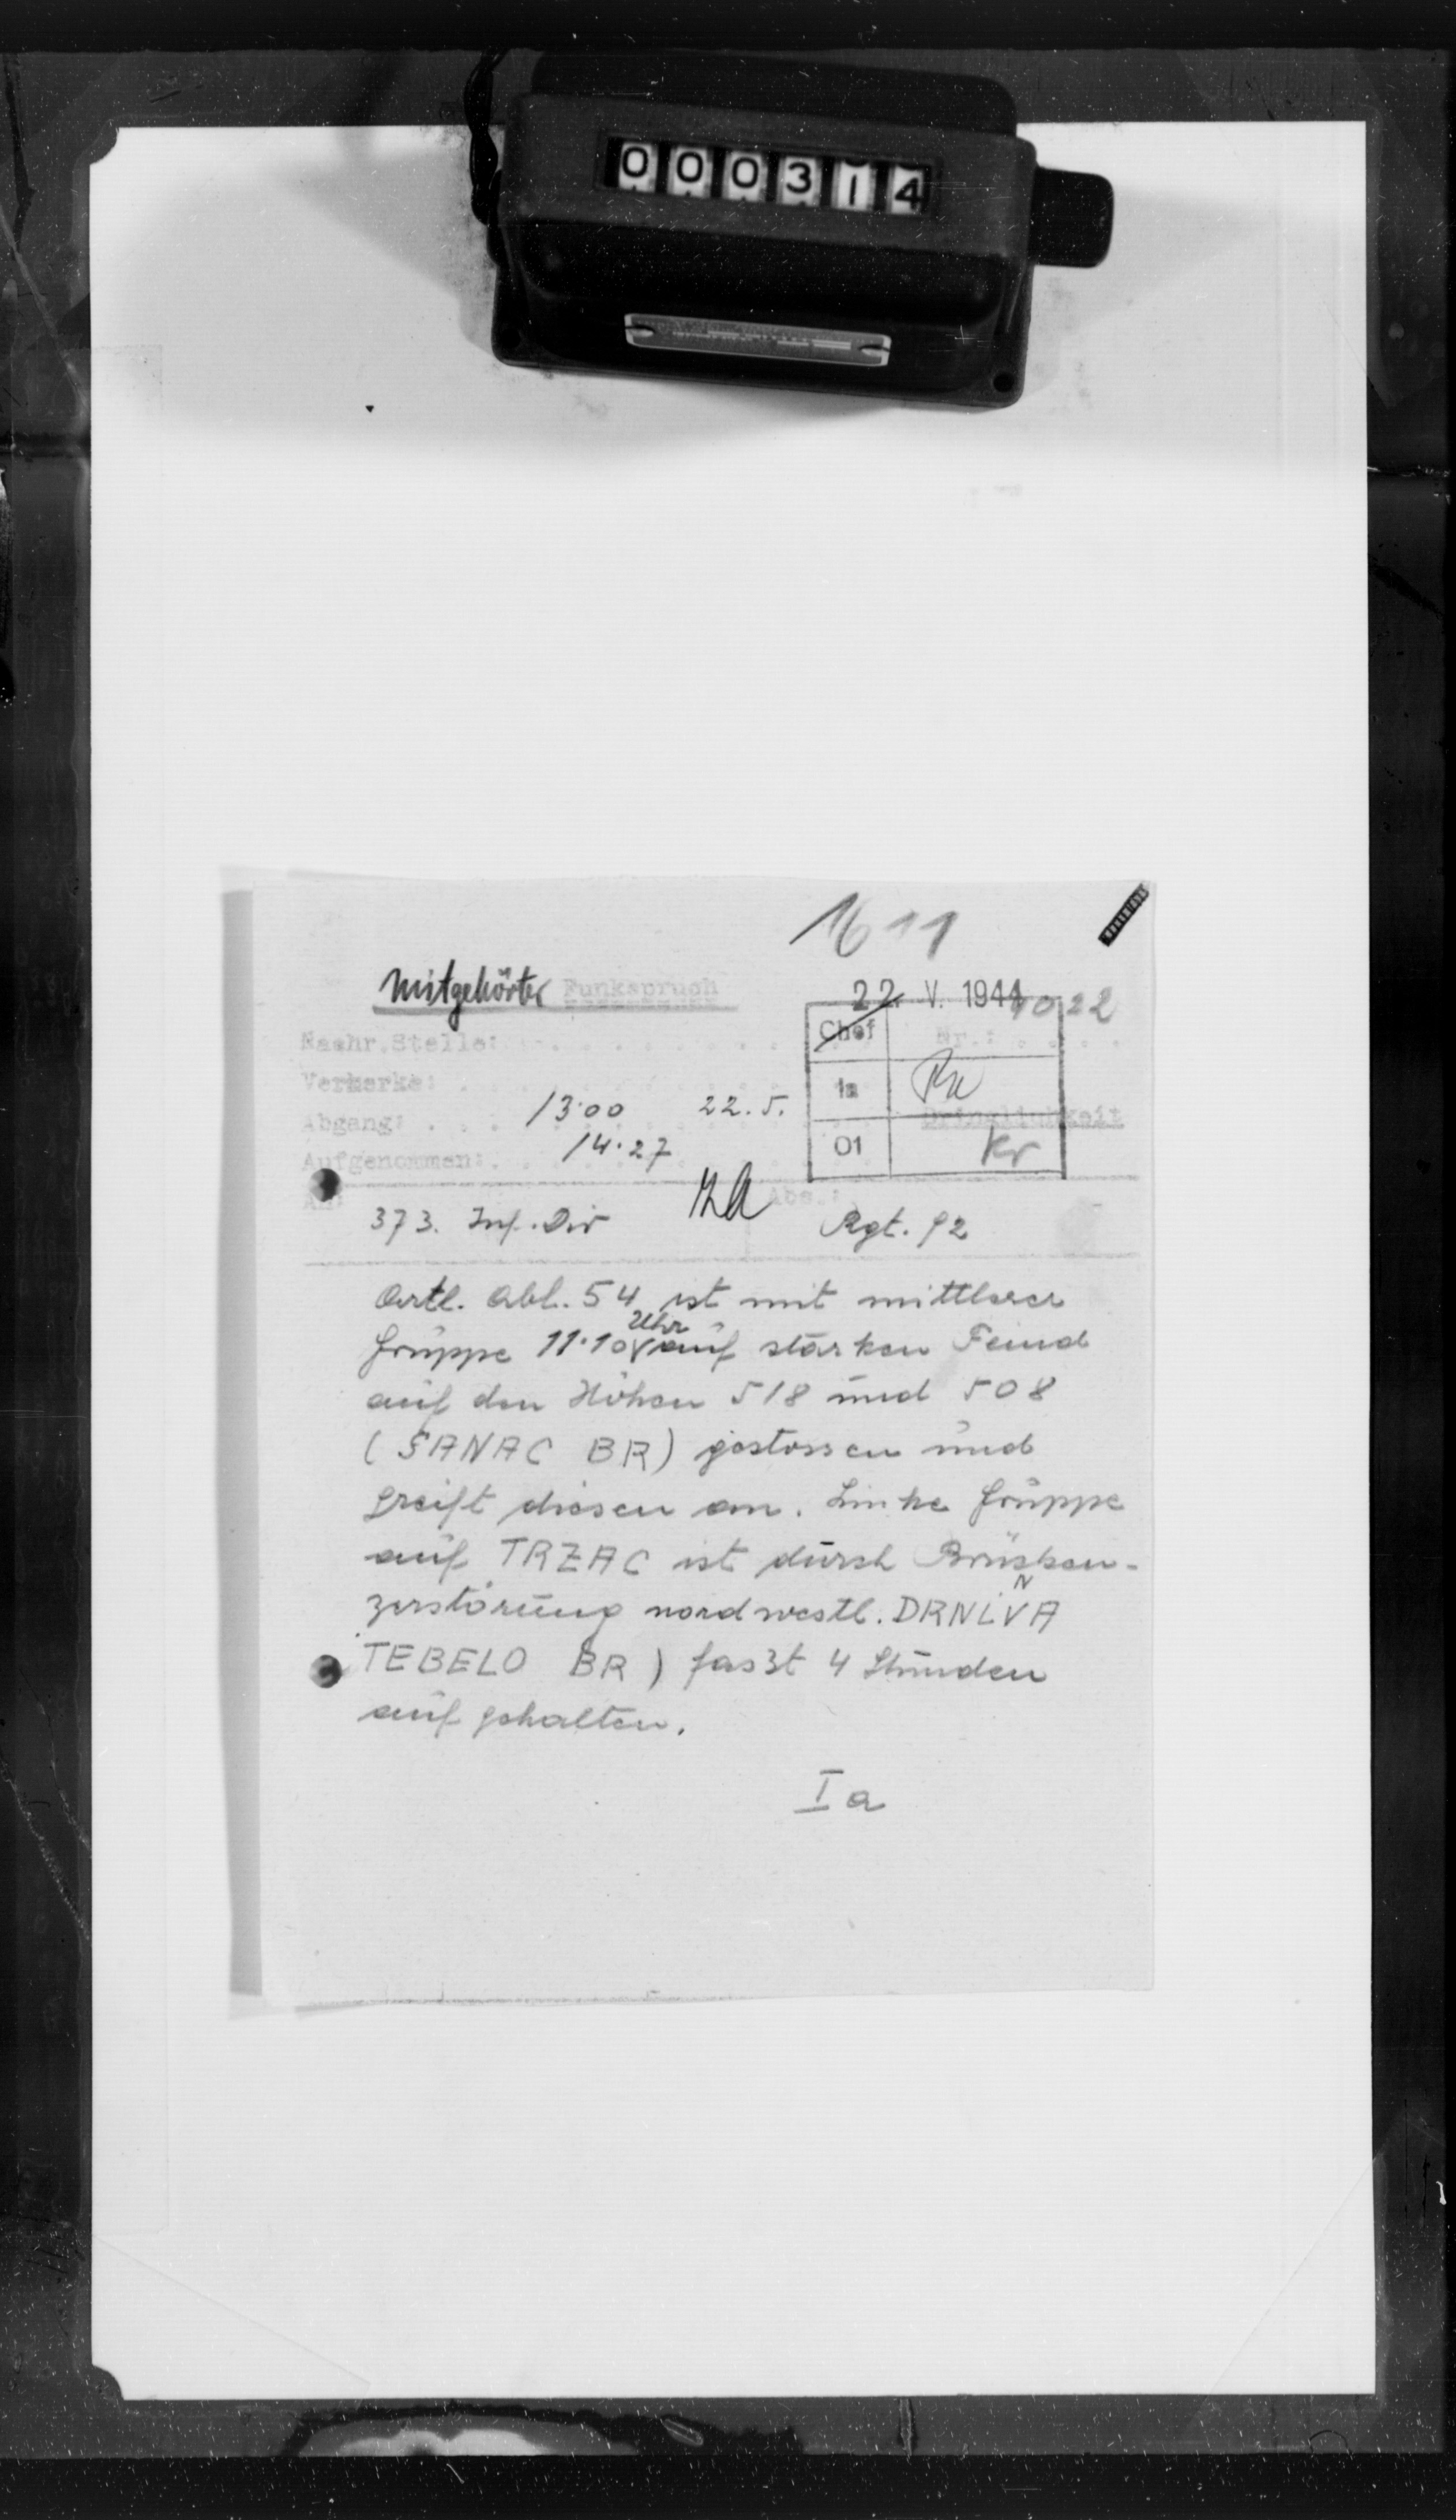 000314
1611
mitgehörter Funkspruch
22. V. 1944 1022
Chef Nr.: . . . .
Nachr.Stelle: . . . . . . . . .
Vermerke: . . . . . . . . .
Ia
Abgang: . . . 13·00 22.5.
Dringlichkeit
Aufgenommen: . . 14·27
01 Kr
An: Abs.:
373. Inf. Div Rgt. 92
Aertl. Abl. 54 ist mit mittlerer
Gruppe 11·10 Uhr auf starken Feind
auf den Höhen 518 und 508
(SANAC BR) gestossen und
greift diesen an. Linke Gruppe
auf TRZAC ist durch Brücken-
zerstörung nordwestl. DRNiVA
N
TEBELO BR) fas3t 4 Stunden
aufgehalten.
Ia